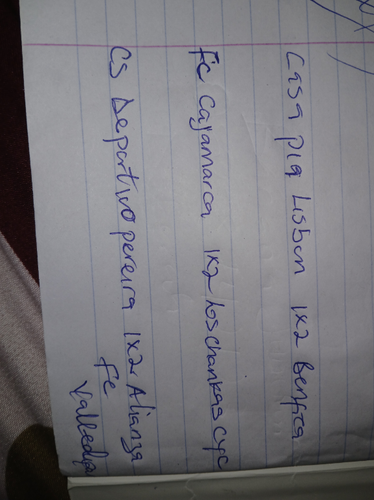 Casa pia Lisbon 1x2 Benfica
Fc Cajamarca 1x2 Los chankas cyc
CS Deportivo pereira 1x2 Alianza
fc